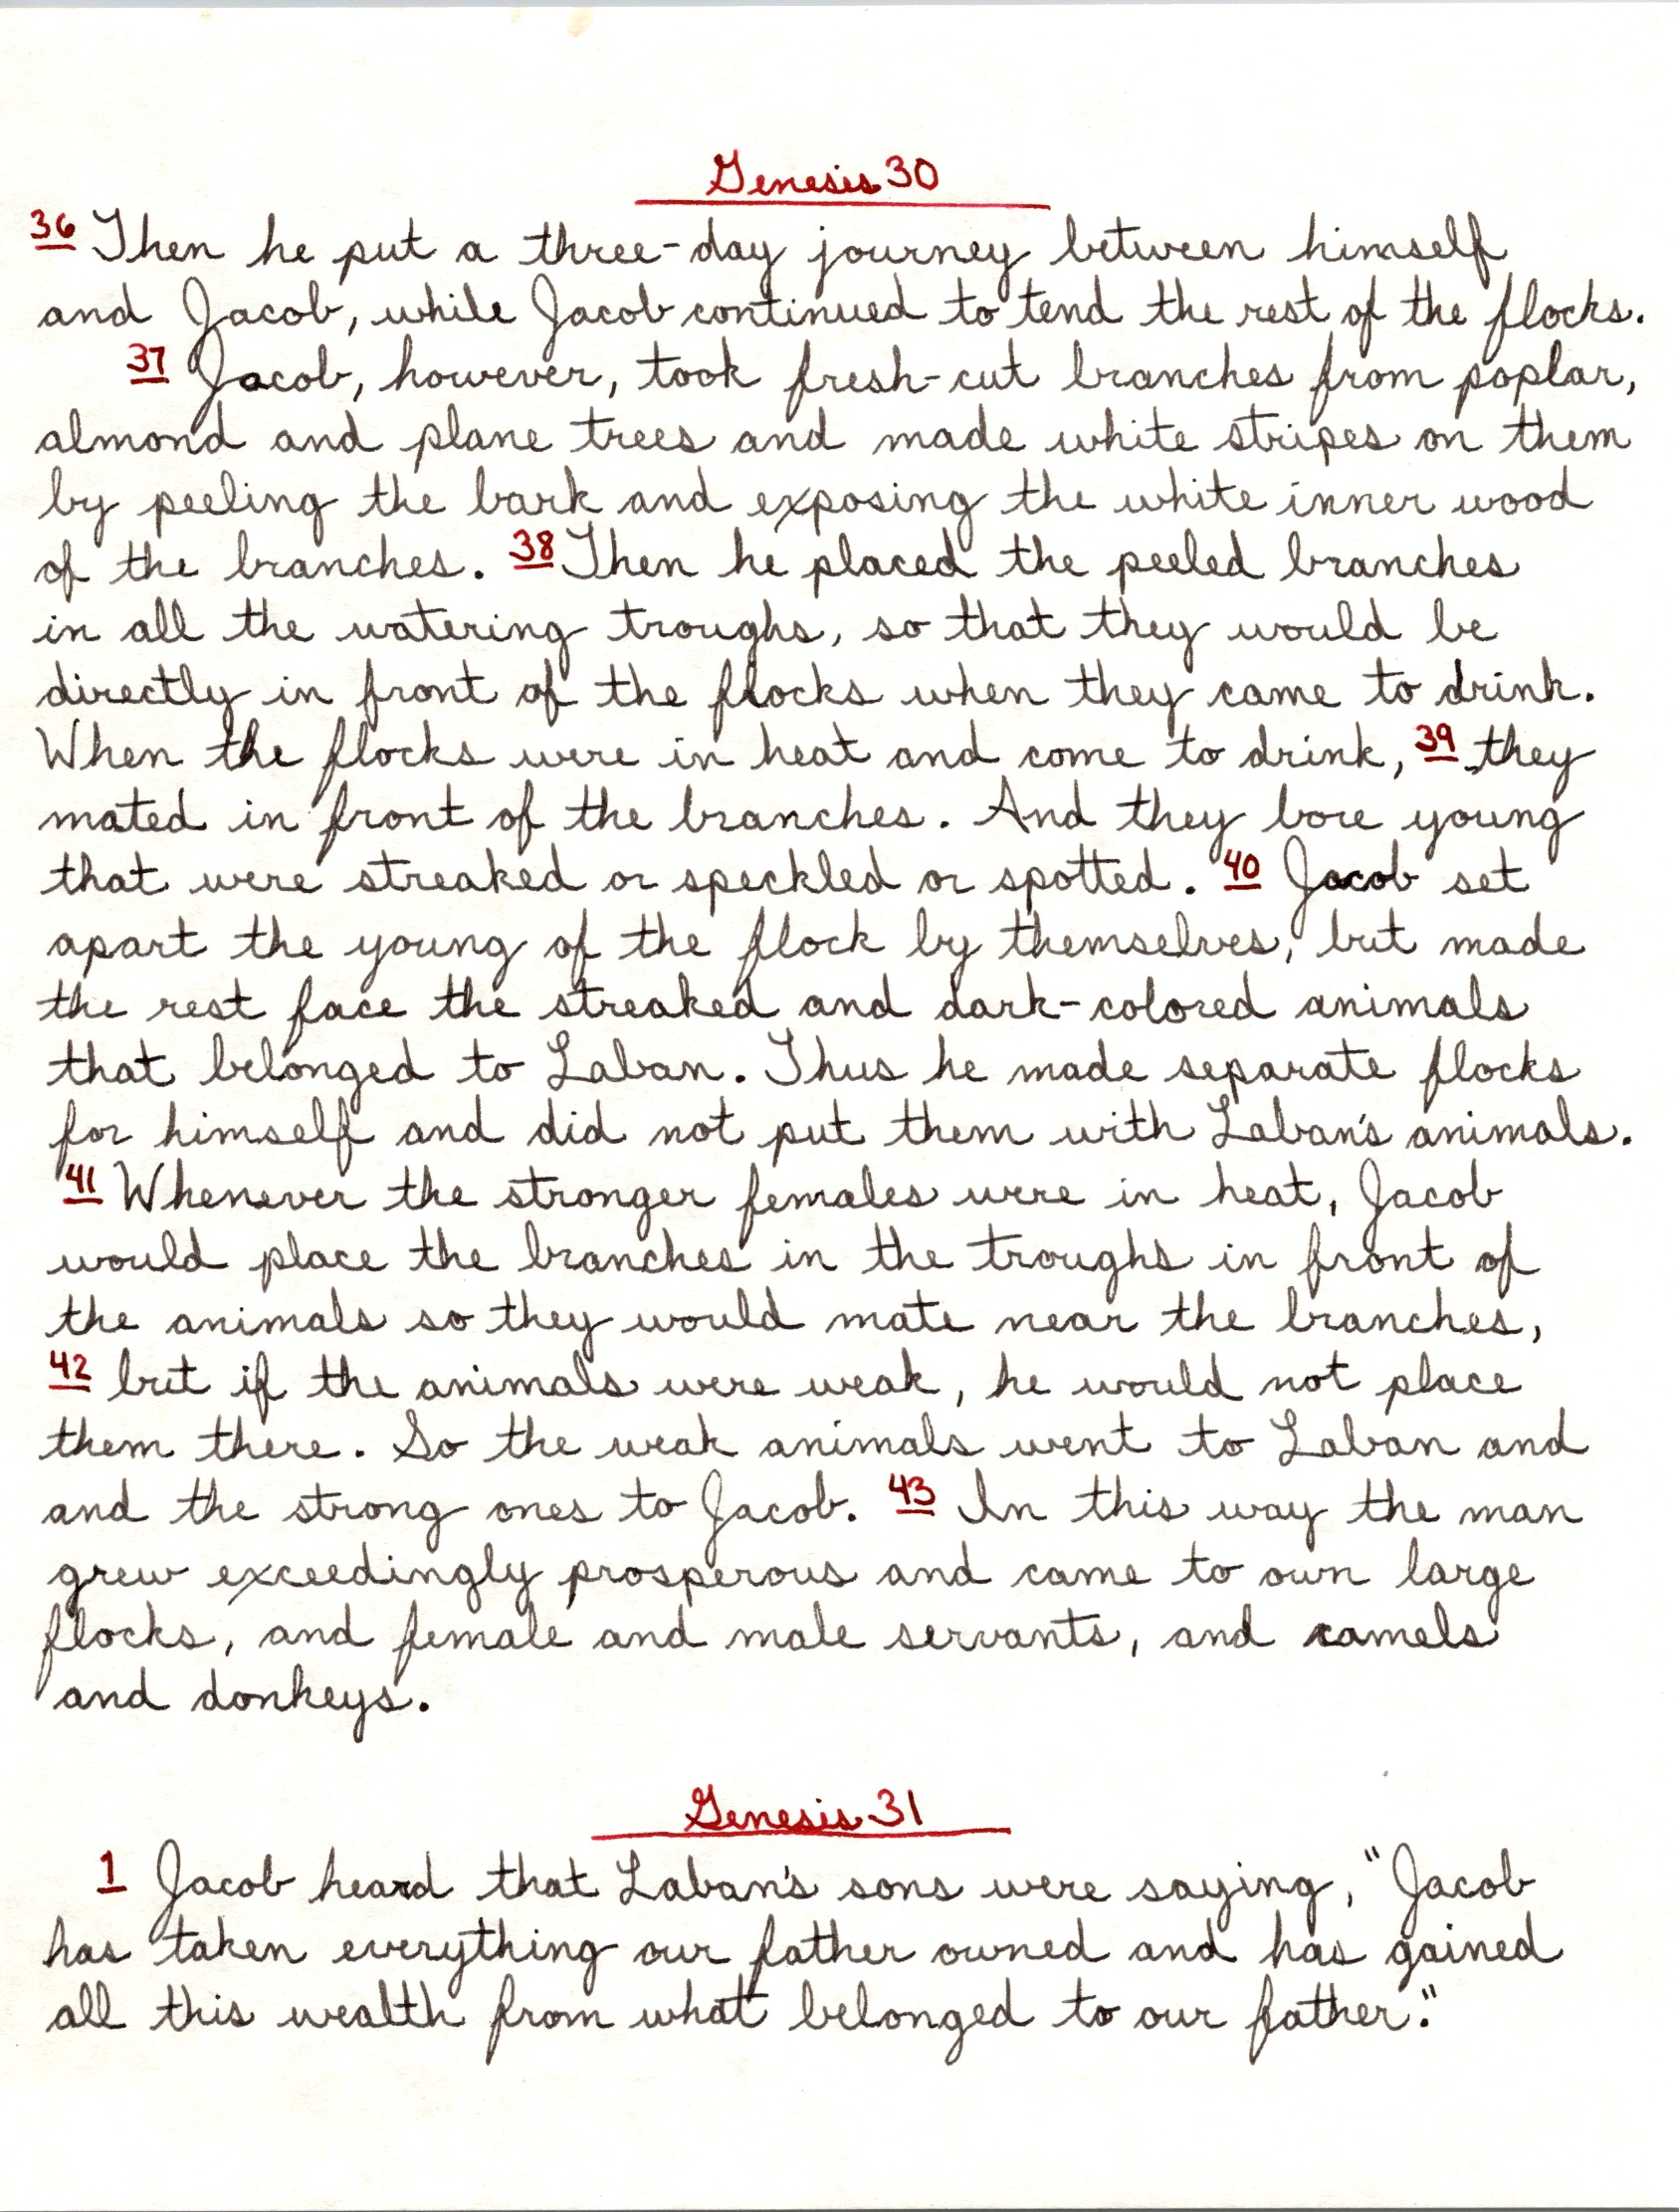 Genesis 30
36 Then he put a three-day journey between himself
and Jacob, while Jacob continued to tend the rest of the flocks.
37 Jacob, however, took fresh-cut branches from poplar,
almond and plane trees and made white stripes on them
by peeling the bark and exposing the white inner wood
of the branches. 38 Then he placed the peeled branches
in all the watering troughs, so that they would be
directly in front of the flocks when they came to drink.
When the flocks were in heat and come to drink, 39 they
mated in front of the branches. And they bore young
that were streaked or speckled or spotted. 40 Jacob set
apart the young of the flock by themselves, but made
the rest face the streaked and dark-colored animals
that belonged to Laban. Thus he made separate flocks
for himself and did not put them with Laban's animals.
41 Whenever the stronger females were in heat, Jacob
would place the branches in the troughs in front of
the animals so they would mate near the branches,
42 but if the animals were weak, he would not place
them there. So the weak animals went to Laban and
and the strong ones to Jacob. 43 In this way the man
grew exceedingly prosperous and came to own large
flocks, and female and male servants, and camels
and donkeys.
Genesis 31
1 Jacob heard that Laban's sons were saying, "Jacob
has taken everything our father owned and has gained
all this wealth from what belonged to our father."